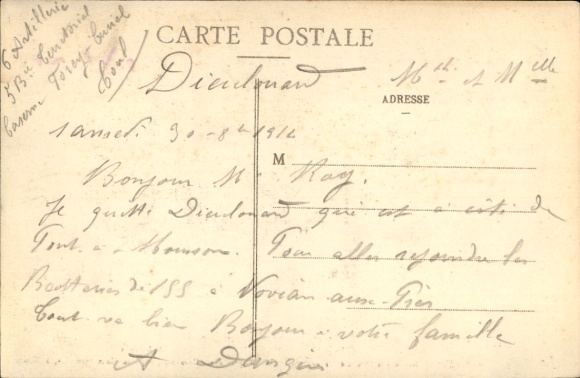 6 Artillerie
5 Bie territorial
Caserne
Toul
CARTE POSTALE
Dieulouard
Mr et Melle
ADRESSE
samedi 30-8bre 191
M
Bonjour Mr Ray.
Je quitte Dieulouard qui est a côté de
Pont-a-Mousson. Pour aller rejoindre les
Batteries de 155 a Novian aux-Prés
Tout va bien Bonjour a votre famille